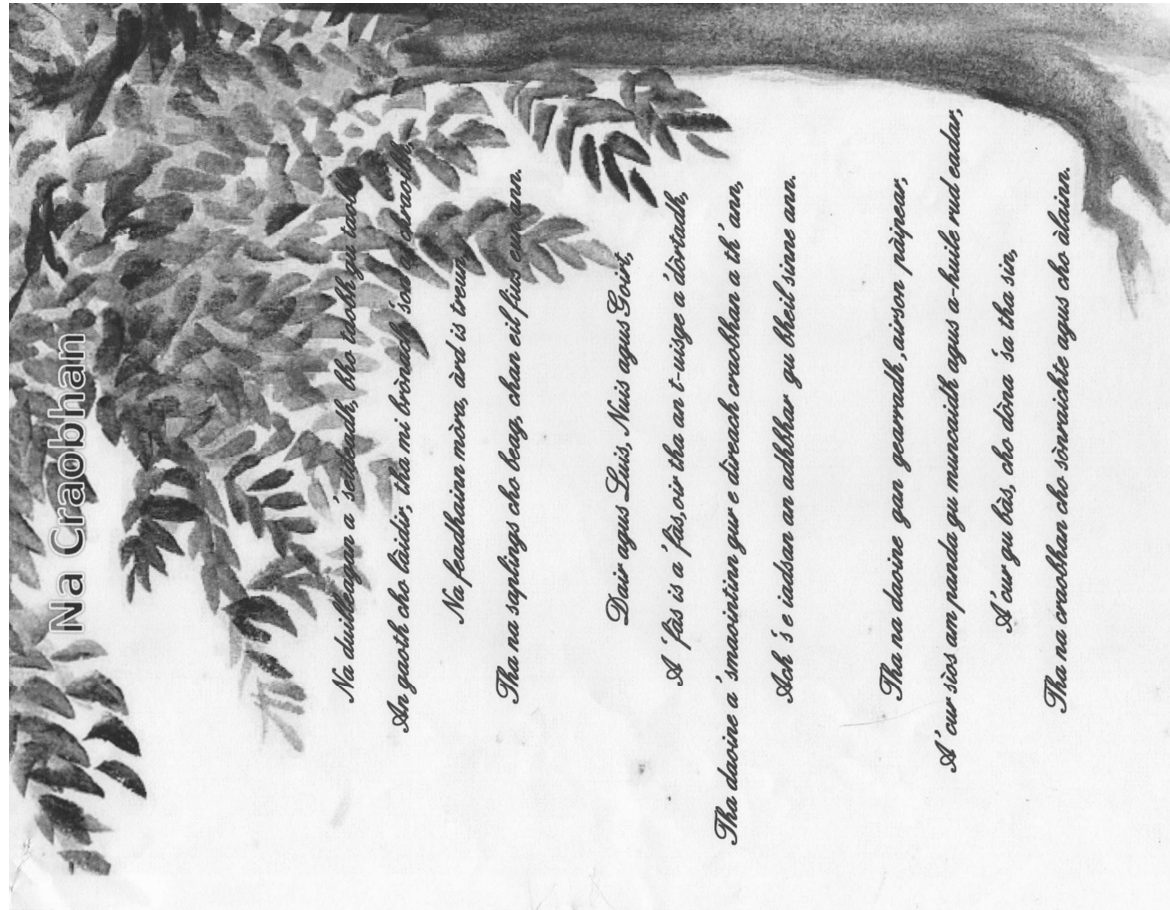 Na Craobhan
Na duilleagan a 'seideadh, bho taobh gu taobh
An gaoth cho làidir, tha mi brònach 'son a' chraoibh,
Na feadhainn mòra, àrd is treun,
Tha na saplings cho beag, chan eil fiùs eun ann.
Dair agus Luis, Nuis agus Goirt,
A' fàs is a' fàs, oir tha an t-uisge a'dòrtadh,
Tha daoine a'smaointinn gur e direach craobhan a th' ann,
Ach 's e iadsan an adhbhar gu bheil sinne ann.
Tha na daoine gan gearradh ,airson pàipear,
A' cur sìos am panda gu muncaidh agus a-huile rud eadar,
A'cur gu bàs, cho dàna 'sa tha sin,
Tha na craobhan cho sònraichte agus cho àlainn.